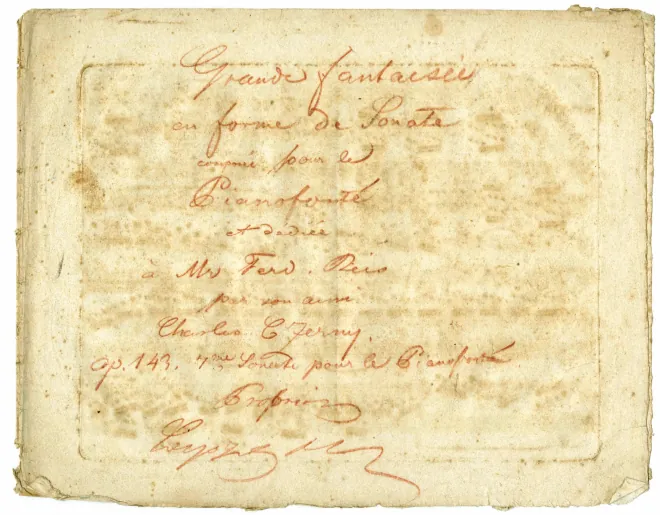 Grande fantaisie
en forme de Sonate
pour le
Pianoforté
et dediée
à Mr Ferd. Ries
par son ami
Charles Czerny.
Op. 143. 7me Sonate pour le Pianoforté